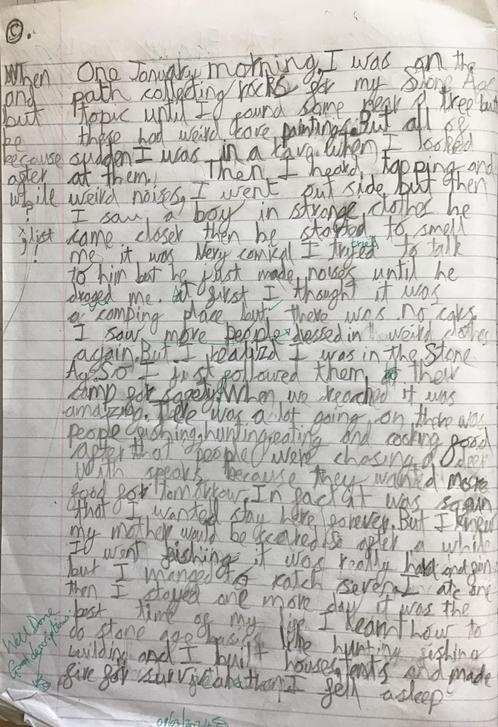 ©.
When One January morning, I was on the
and path collecting rocks for my Stone Age
but topic until I found some near a tree but
be these had weird cave paintings. But all of
because sudden I was in a cave when I looked
after at them. Then I heard tapping and
while weird noises, I went out side but then
? I saw a boy in strange clothes he
; list came closer then he started to smell
! me it was very comical I tryed tried to talk
to him but he just made noises until he
droged me. At first I thought it was
a comping place but there was no cars
I saw more people dessed in weird clothes
again. But I realizd I was in the Stone
Age. So I just followed them to their
camp for safety. When we reached it was
amazing. There was a lot going on there was
people fishing, hunting, eating and cooking food
after that people were chasing a deer
with spears because they wanted more
food for tomorrow. In fact it was so fun
that I wanted stay here forever. But I knew
my mother would be so after a while
I went fishing it was really hard and
but I manged to katch several I ate one
then I stayed one more day it was the
best time of my life I learnt how to
do stone age basics like hunting fishing
building and I built houses, tents and made
fire for survical then I fell asleep
Well Done
Good description